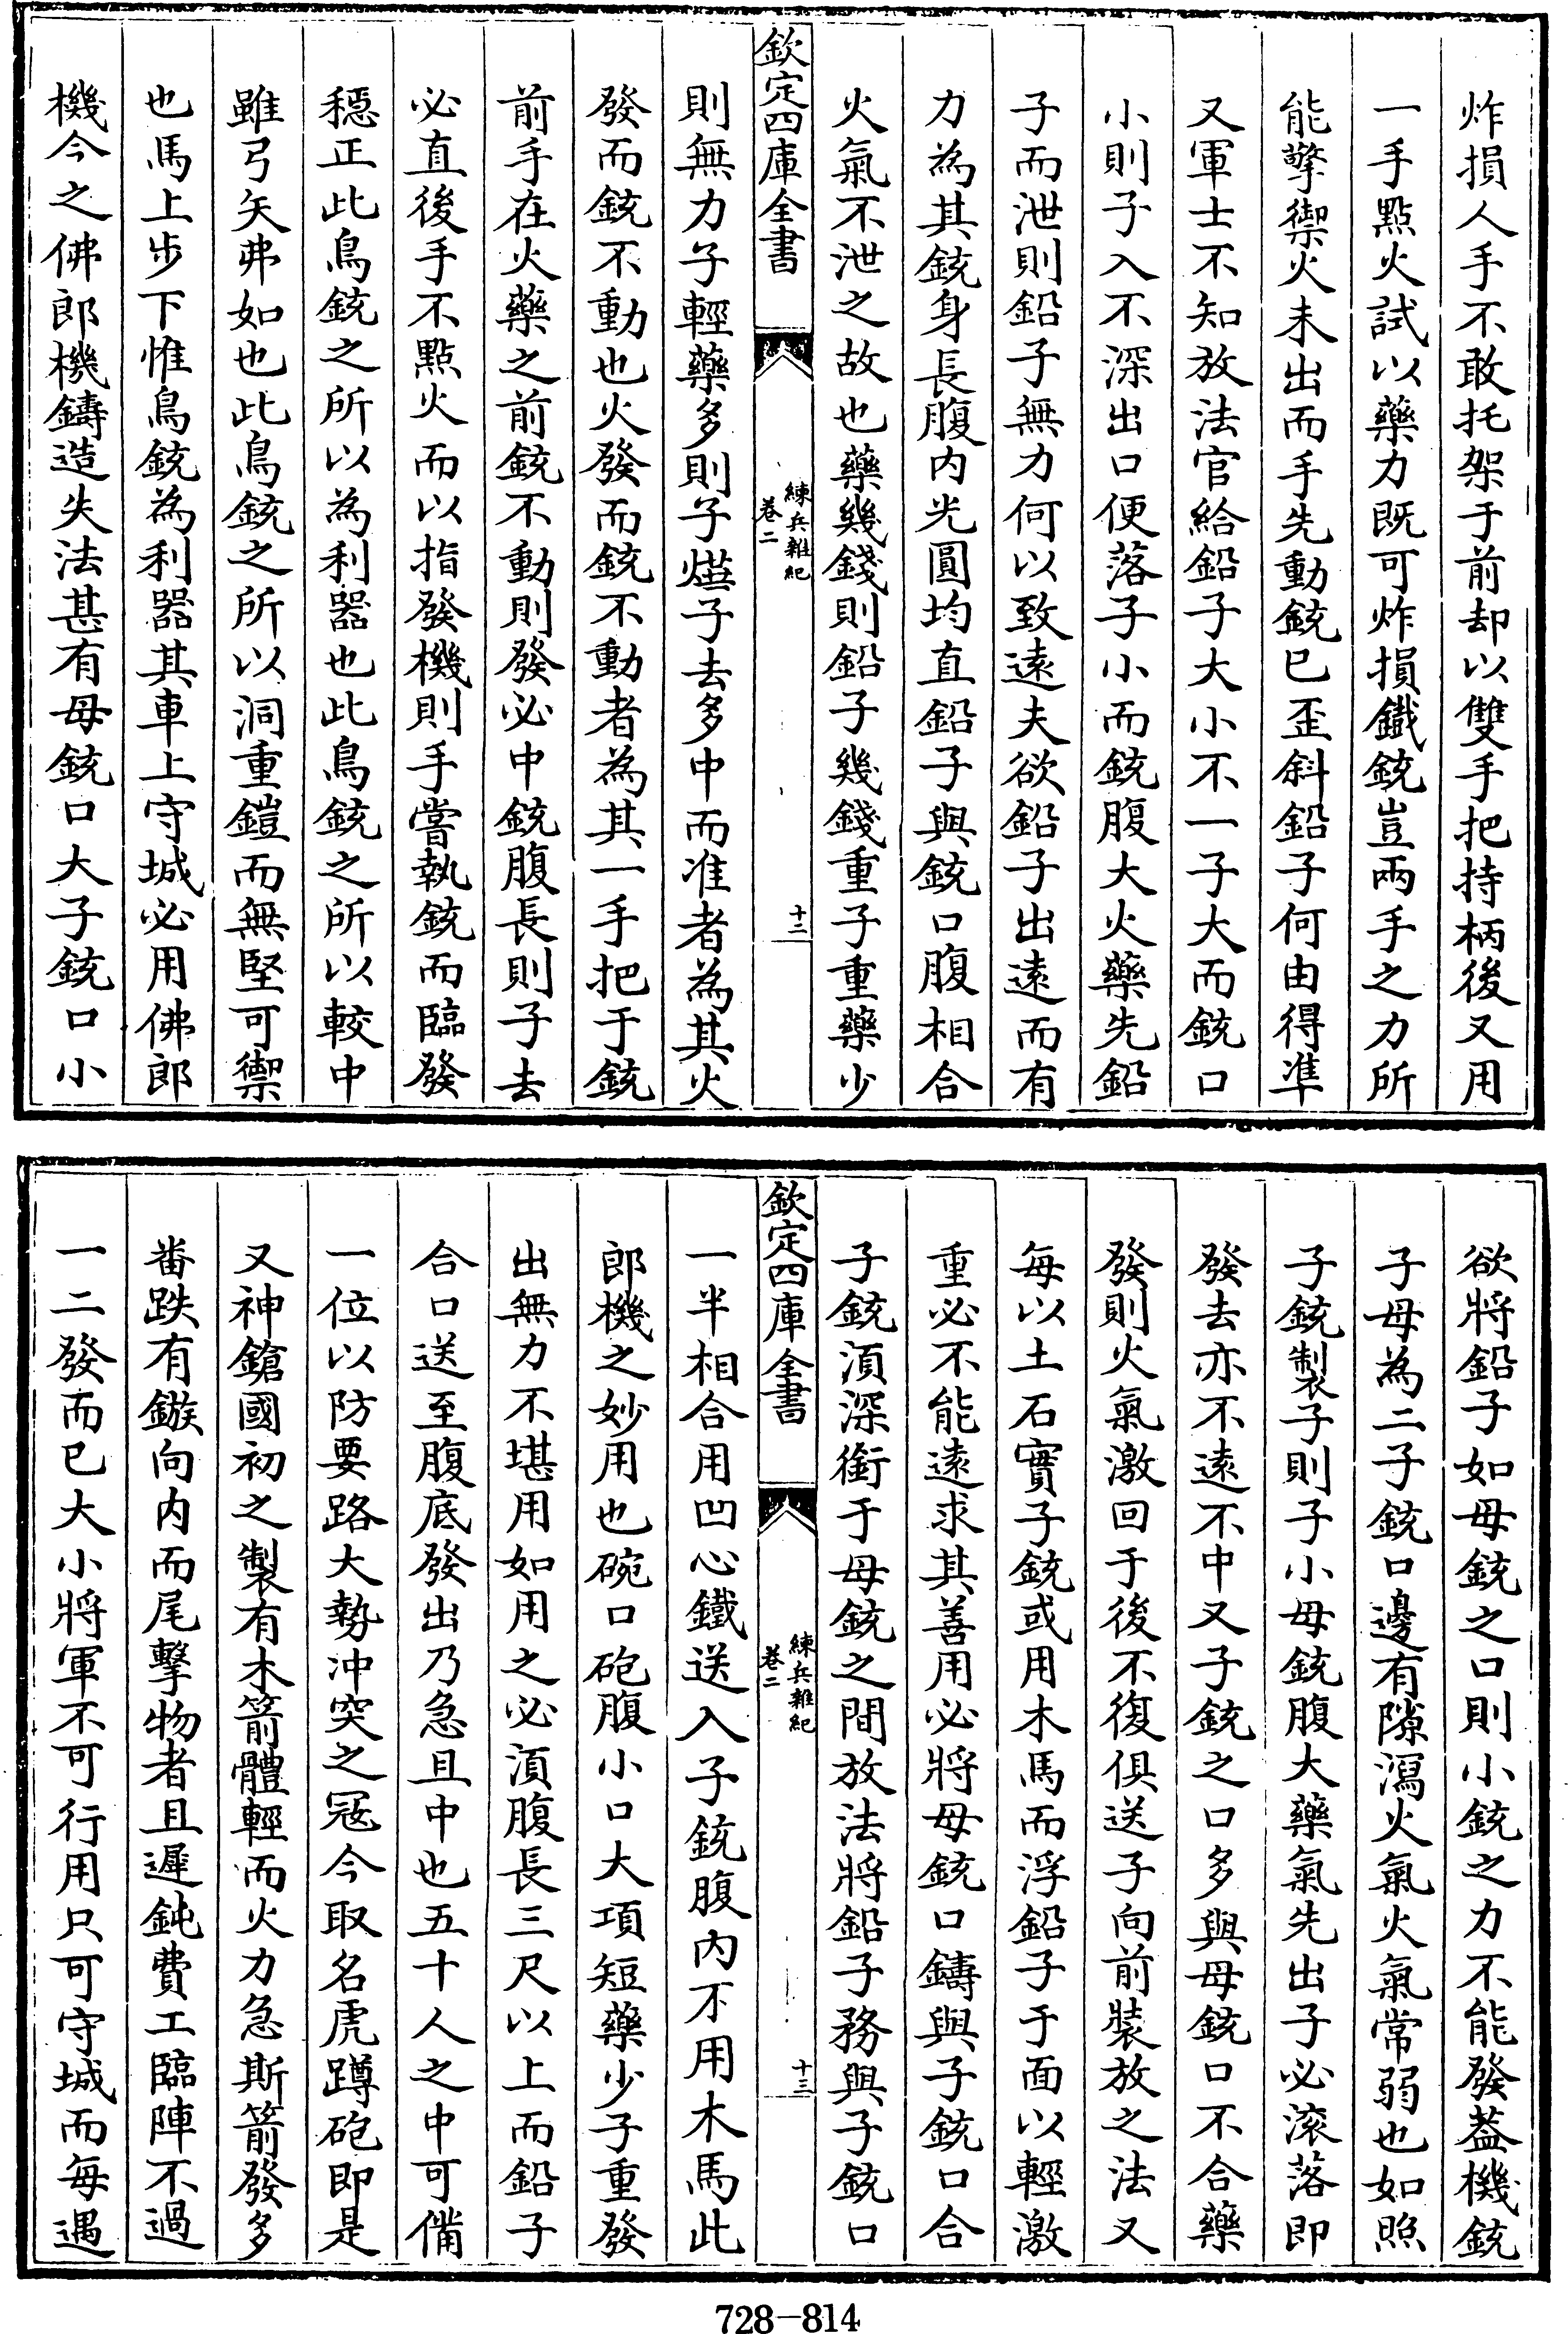 炸損人手不敢托架于前却以雙手把持柄後又用
一手點火試以藥力既可炸損鐵銃豈兩手之力所
能擎禦火未出而手先動銃已歪斜鉛子何由得準
又軍士不知放法官給鉛子大小不一子大而銃口
小則子入不深出口便落子小而銃腹大火藥先鉛
子而泄則鉛子無力何以致遠夫欲鉛子出遠而有
力為其銃身長腹內光圓均直鉛子與銃口腹相合
火氣不泄之故也藥幾錢則鉛子幾錢重子重藥少
欽定四庫全書
練兵雜紀
卷二
十二
則無力子輕藥多則子㷸子去多中而准者為其火
發而銃不動也火發而銃不動者為其一手把于銃
前手在火藥之前銃不動則發必中銃腹長則子去
必直後手不點火而以指發機則手嘗執銃而臨發
穩正此鳥銃之所以為利器也此鳥銃之所以較中
雖弓矢弗如也此鳥銃之所以洞重鎧而無堅可禦
也馬上步下惟鳥銃為利器其車上守城必用佛郎
機今之佛郎機鑄造失法甚有母銃口大子銃口小
欲將鉛子如母銃之口則小銃之力不能發葢機銃
子母為二子銃口邊有隙瀉火氣火氣常弱也如照
子銃製子則子小母銃腹大藥氣先出子必滚落即
發去亦不遠不中又子銃之口多與母銃口不合藥
發則火氣激回于後不復俱送子向前裝放之法又
每以土石實子銃或用木馬而浮鉛子于面以輕激
重必不能遠求其善用必將母銃口鑄與子銃口合
子銃湏深銜于母銃之間放法將鉛子務與子銃口
欽定四庫全書
練兵雜紀
卷二
十三
一半相合用凹心鐵送入子銃腹內不用木馬此
郎機之妙用也碗口砲腹小口大項短藥少子重發
出無力不堪用如用之必湏腹長三尺以上而鉛子
合口送至腹底發出乃急且中也五十人之中可備
一位以防要路大勢冲突之冦今取名虎蹲砲即是
又神鎗國初之製有木箭體輕而火力急斯箭發多
番跌有鏃向內而尾擊物者且遲鈍費工臨陣不過
一二發而已大小將軍不可行用只可守城而每遇
728-814